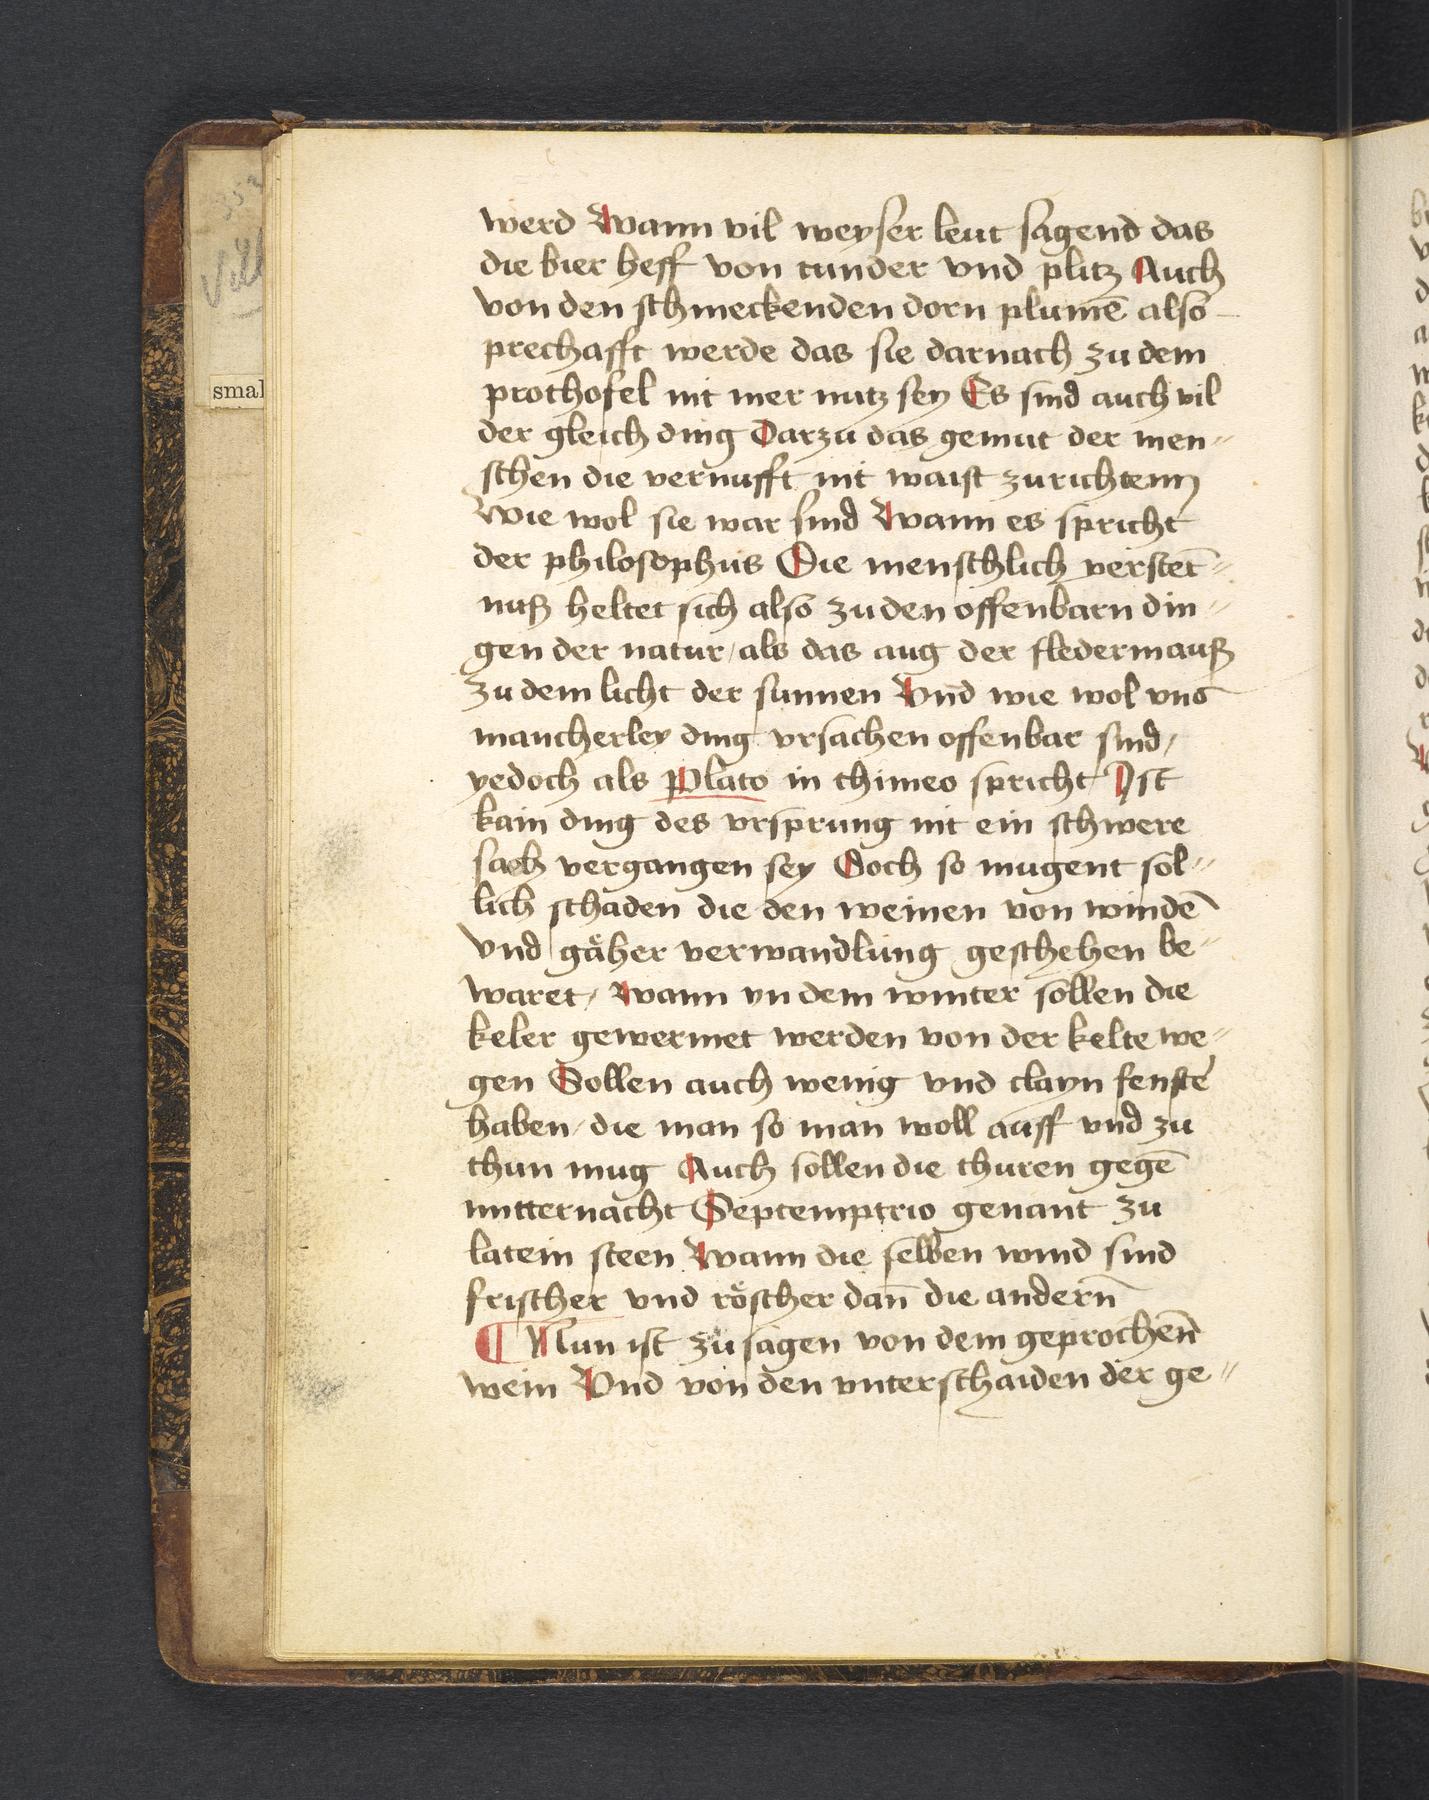 werd Wann vil weyser leut sagend das
die bier heff von tunder vnd plitz Auch
von den schmeckenden dorn plumē also
prechafft werde das sie darnach zu dem
prothofel nit mer nutz sey Es sind auch vil
der gleich ding Darzu das gemut der men⸗
schen die vernufft nit waist zurichtenn
Wie wol sie war sind Wann es spricht
der philosophus Die menschlich versteēt⸗
nuß heltet sich also zu den offenbarn din⸗
gen der natur / als das aug der fledermauß
zu dem licht der sunnen Vnd wie wol vns
mancherley ding vrsachen offenbar sind /
yedoch als Plato in thimeo spricht Ist
kain ding des vrsprung nit ein schwere
sach vergangen sey Doch so mugent sol⸗
lich schaden die den weinen von windē
vnd gäher verwandlung geschehen be⸗
waret / Wann yn dem winter sollen die
keler gewermet werden von der kelte we⸗
gen Sollen auch wenig vnd clayn fenste
haben / die man so man woll auff vnd zu
thun mug Auch sollen die thuren gegē
mitternacht Septemptrio genant zu
latein steen Wann die selben wind sind
frischer vnd röscher dañ die andern
¶ Nun ist zu sagen von dem geprochen̄
wein Vnd von den vnterschaiden der ge⸗
smal